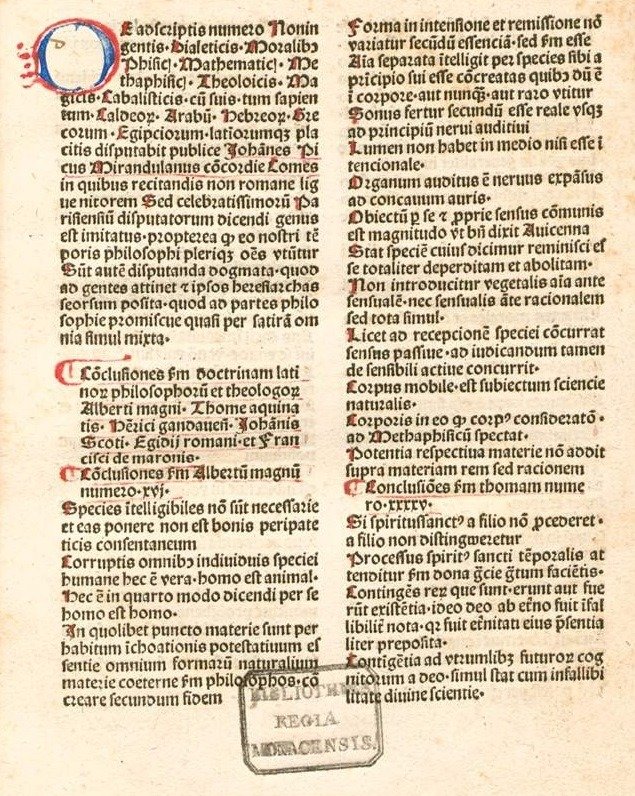 DE adscriptis numero Nonin
gentis· Dialeticis· Moralibꝫ
Phisicꝭ· Mathematicꝭ· Me
thaphisicꝭ· Theoloicis· Ma
gicis· Cabalisticis· cū suis· tum sapien
tum· Caldeoꝝ· Arabū· Hebreoꝝ· Gre
corum· Egipciorum· latiorumqꝫ pla
citis disputabit publice Johānes Pi
cus Mirandulanus cōcordie Comes
in quibus recitandis non romane lig
ue nitorem Sed celebratissimorū Pa
risiensiū disputatorum dicendi genus
est imitatus· propterea ꝙ eo nostri tē
poris philosophi pleriqꝫ oēs vtūtur
Sūt autē disputanda dogmata· quod
ad gentes attinet ⁊ ipsos heresiarchas
seorsum posita· quod ad partes philo
sophie promiscue quasi per satirā om
nia simul mixta·
Cōclusiones ẜm doctrinam lati
noꝝ philosophorū et theologoꝝ
Alberti magni· Thome aquina
tis· Hērici gandaueñ· Johānis
Scoti· Egidij romani· et Fran
cisci de maronis·
Cōclusiones ẜm Albertū magnū
numero· xvj·
Species ītelligibiles nō sūt necessarie
et eas ponere non est bonis peripate
ticis consentaneum
Corruptis omnibꝫ indiuiduis speciei
humane hec ē vera· homo est animal·
Hec ē in quarto modo dicendi per se
homo est homo·
In quolibet puncto materie sunt per
habitum īchoationis potestatiuum es
sentie omnium formarū naturalium
materie coeterne ẜm philosophos· cō
creare secundum fidem
Forma in intensione et remissione nō
variatur secūdū essenciā· sed ẜm esse
Aīa separata ītelligit per species sibi a
prīcipio sui esse cōcreatas quibꝫ dū ē
ī corpore· aut nunqꝫ· aut raro vtitur
Sonus fertur secundū esse reale vsqꝫ
ad principiū nerui auditiui
Lumen non habet in medio nisi esse ī
tencionale·
Organum auditus ē neruus expāsus
ad concauum auris·
Obiectū ꝑ se ⁊ ꝓprie sensus cōmunis
est magnitudo vt bñ dixit Auicenna
Stat speciē cuius dicimur reminisci es
se totaliter deperditam et abolitam·
Non introducitur vegetalis aīa ante
sensualē· nec sensualis āte racionalem
sed tota simul·
Licet ad recepcionē speciei cōcurrat
sensus passiue· ad iudicandum tamen
de sensibili actiue concurrit·
Corpus mobile· est subiectum sciencie
naturalis·
Corporis in eo ꝙ corpꝰ consideratō·
ad Methaphisicū spectat·
Potentia respectiua materie nō addit
supra materiam rem sed racionem
Conclusiōes ẜm thomam nume
ro· xxxxv·
Si spiritussanctꝰ a filio nō ꝓcederet·
a filio non distingweretur
Processus spiritꝰ sancti tēporalis at
tenditur ẜm dona gr̄cie gr̄tum faciētis·
Contingēs reꝝ que sunt· erunt aut fue
rūt existētia· ideo deo ab et̄no fuit īfal
libilit̄ nota· qꝛ fuit et̄nitati eius p̄sentia
liter preposita·
Contigētia ad vtrumlibꝫ futuroꝝ cog
nitorum a deo· simul stat cum infallibi
litate diuine scientie·
BIBLIOTHECA
REGIA
MONACENSIS.